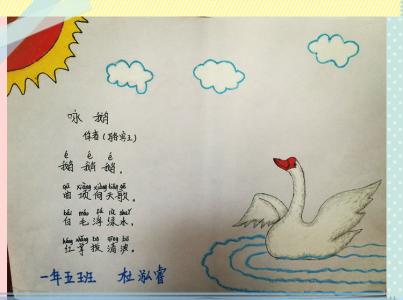 咏 鹅
作者(骆宾王)
é é é
鹅 鹅 鹅,
qū xiàng xiàng tiān gē
曲 项 向 天 歌。
bái máo fú lǜ shuǐ
白 毛 浮 绿 水,
hóng zhǎng bō qīng bō
红 掌 拨 清 波。
一年五班 杜泓睿